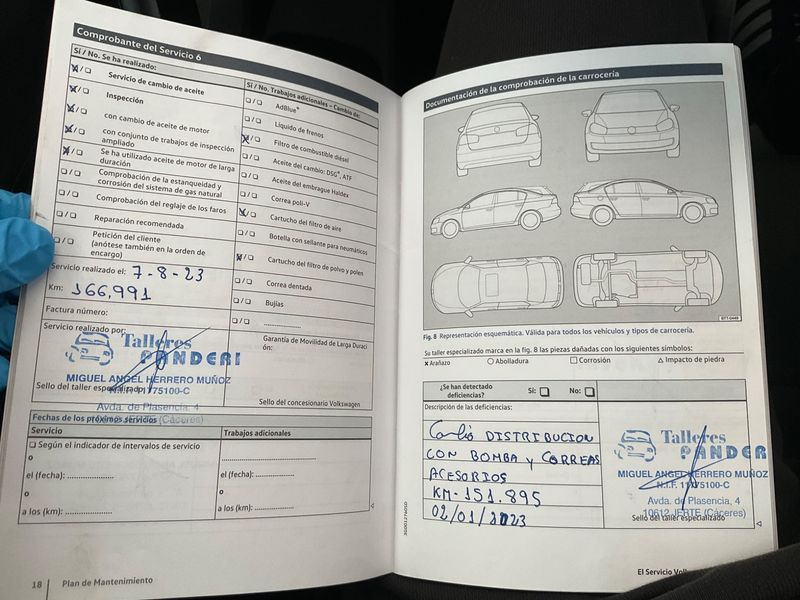 Comprobante del Servicio 6
Sí / No. Se ha realizado:
Servicio de cambio de aceite
Inspección
con cambio de aceite de motor
con conjunto de trabajos de inspección
ampliado
Se ha utilizado aceite de motor de larga
duración
Comprobación de la estanqueidad y
corrosión del sistema de gas natural
Comprobación del reglaje de los faros
Reparación recomendada
Petición del cliente
(anótese también en la orden de
encargo)
Servicio realizado el: 7-8-23
Km: 166.991
Factura número:
Servicio realizado por:
Talleres
PANDERI
MIGUEL ANGEL HERRERO MUÑOZ
Sello del taller especializado
Avda. de Plasencia, 4
Sí / No. Trabajos adicionales – Cambio de:
AdBlue®
Líquido de frenos
Filtro de combustible diésel
Aceite del cambio: DSG®, ATF
Aceite del embrague Haldex
Correa poli-V
Cartucho del filtro de aire
Botella con sellante para neumáticos
Cartucho del filtro de polvo y polen
Correa dentada
Bujías
....................
Garantía de Movilidad de Larga Duraci
ón:
Sello del concesionario Volkswagen
Fechas de los próximos servicios
Servicio
Trabajos adicionales
Según el indicador de intervalos de servicio
o
el (fecha): ....................
o
a los (km): ....................
....................
el (fecha): ....................
o
a los (km): ....................
18 | Plan de Mantenimiento
Documentación de la comprobación de la carrocería
BTT-0449
Fig. 8 Representación esquemática. Válida para todos los vehículos y tipos de carrocería.
Su taller especializado marca en la fig. 8 las piezas dañadas con los siguientes símbolos:
x Arañazo
O Abolladura
Corrosión
△ Impacto de piedra
¿Se han detectado
deficiencias?
Sí:
No:
Descripción de las deficiencias:
Cambio DISTRIBUCION
CON BOMBA y CORREAS
ACESORIOS
KM-151.895
02/01/2023
Talleres
PANDER
MIGUEL ANGEL HERRERO MUÑOZ
Avda. de Plasencia, 4
10612 JERTE (Cáceres)
Sello del taller especializado
El Servicio